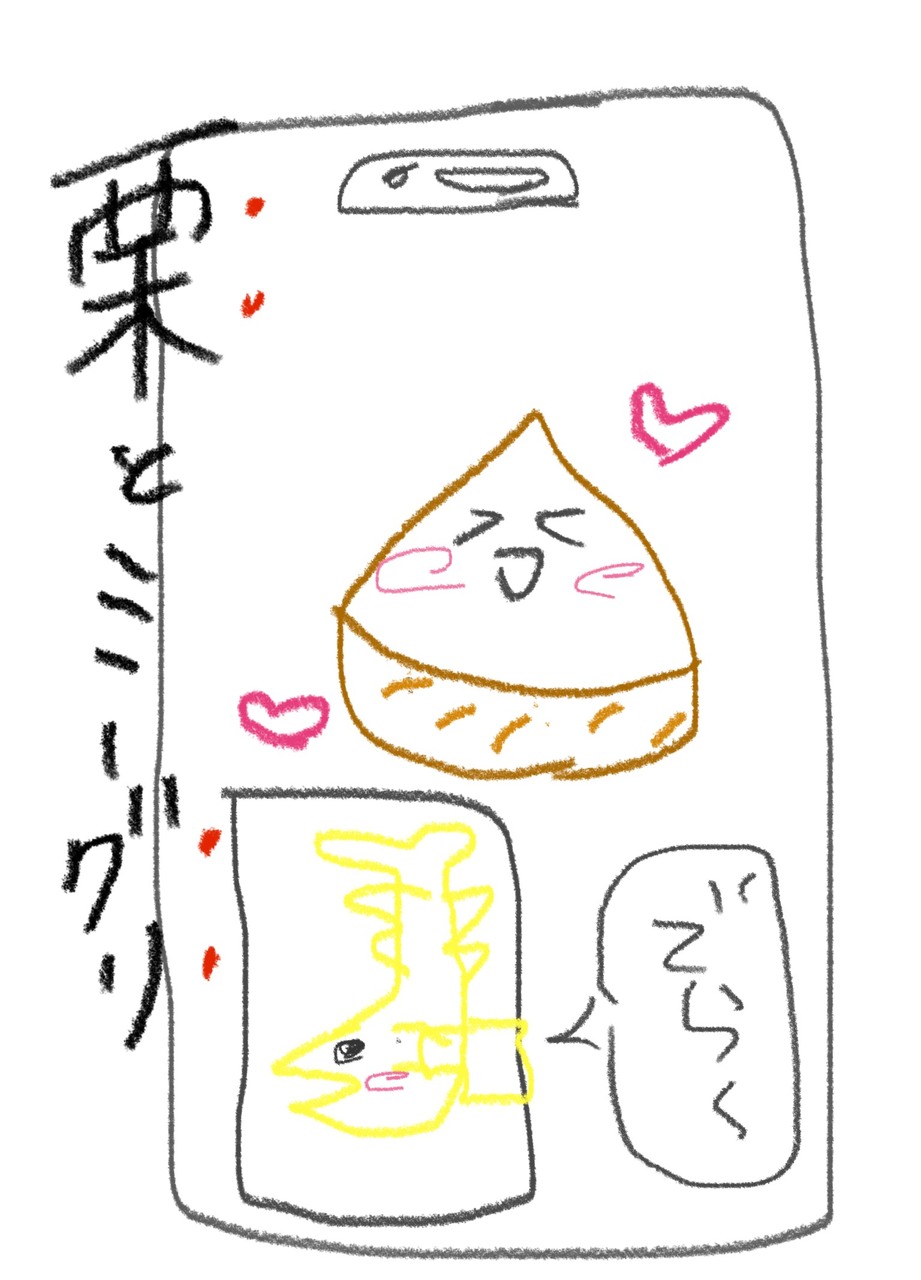 栗とミーグリ
ぞらく